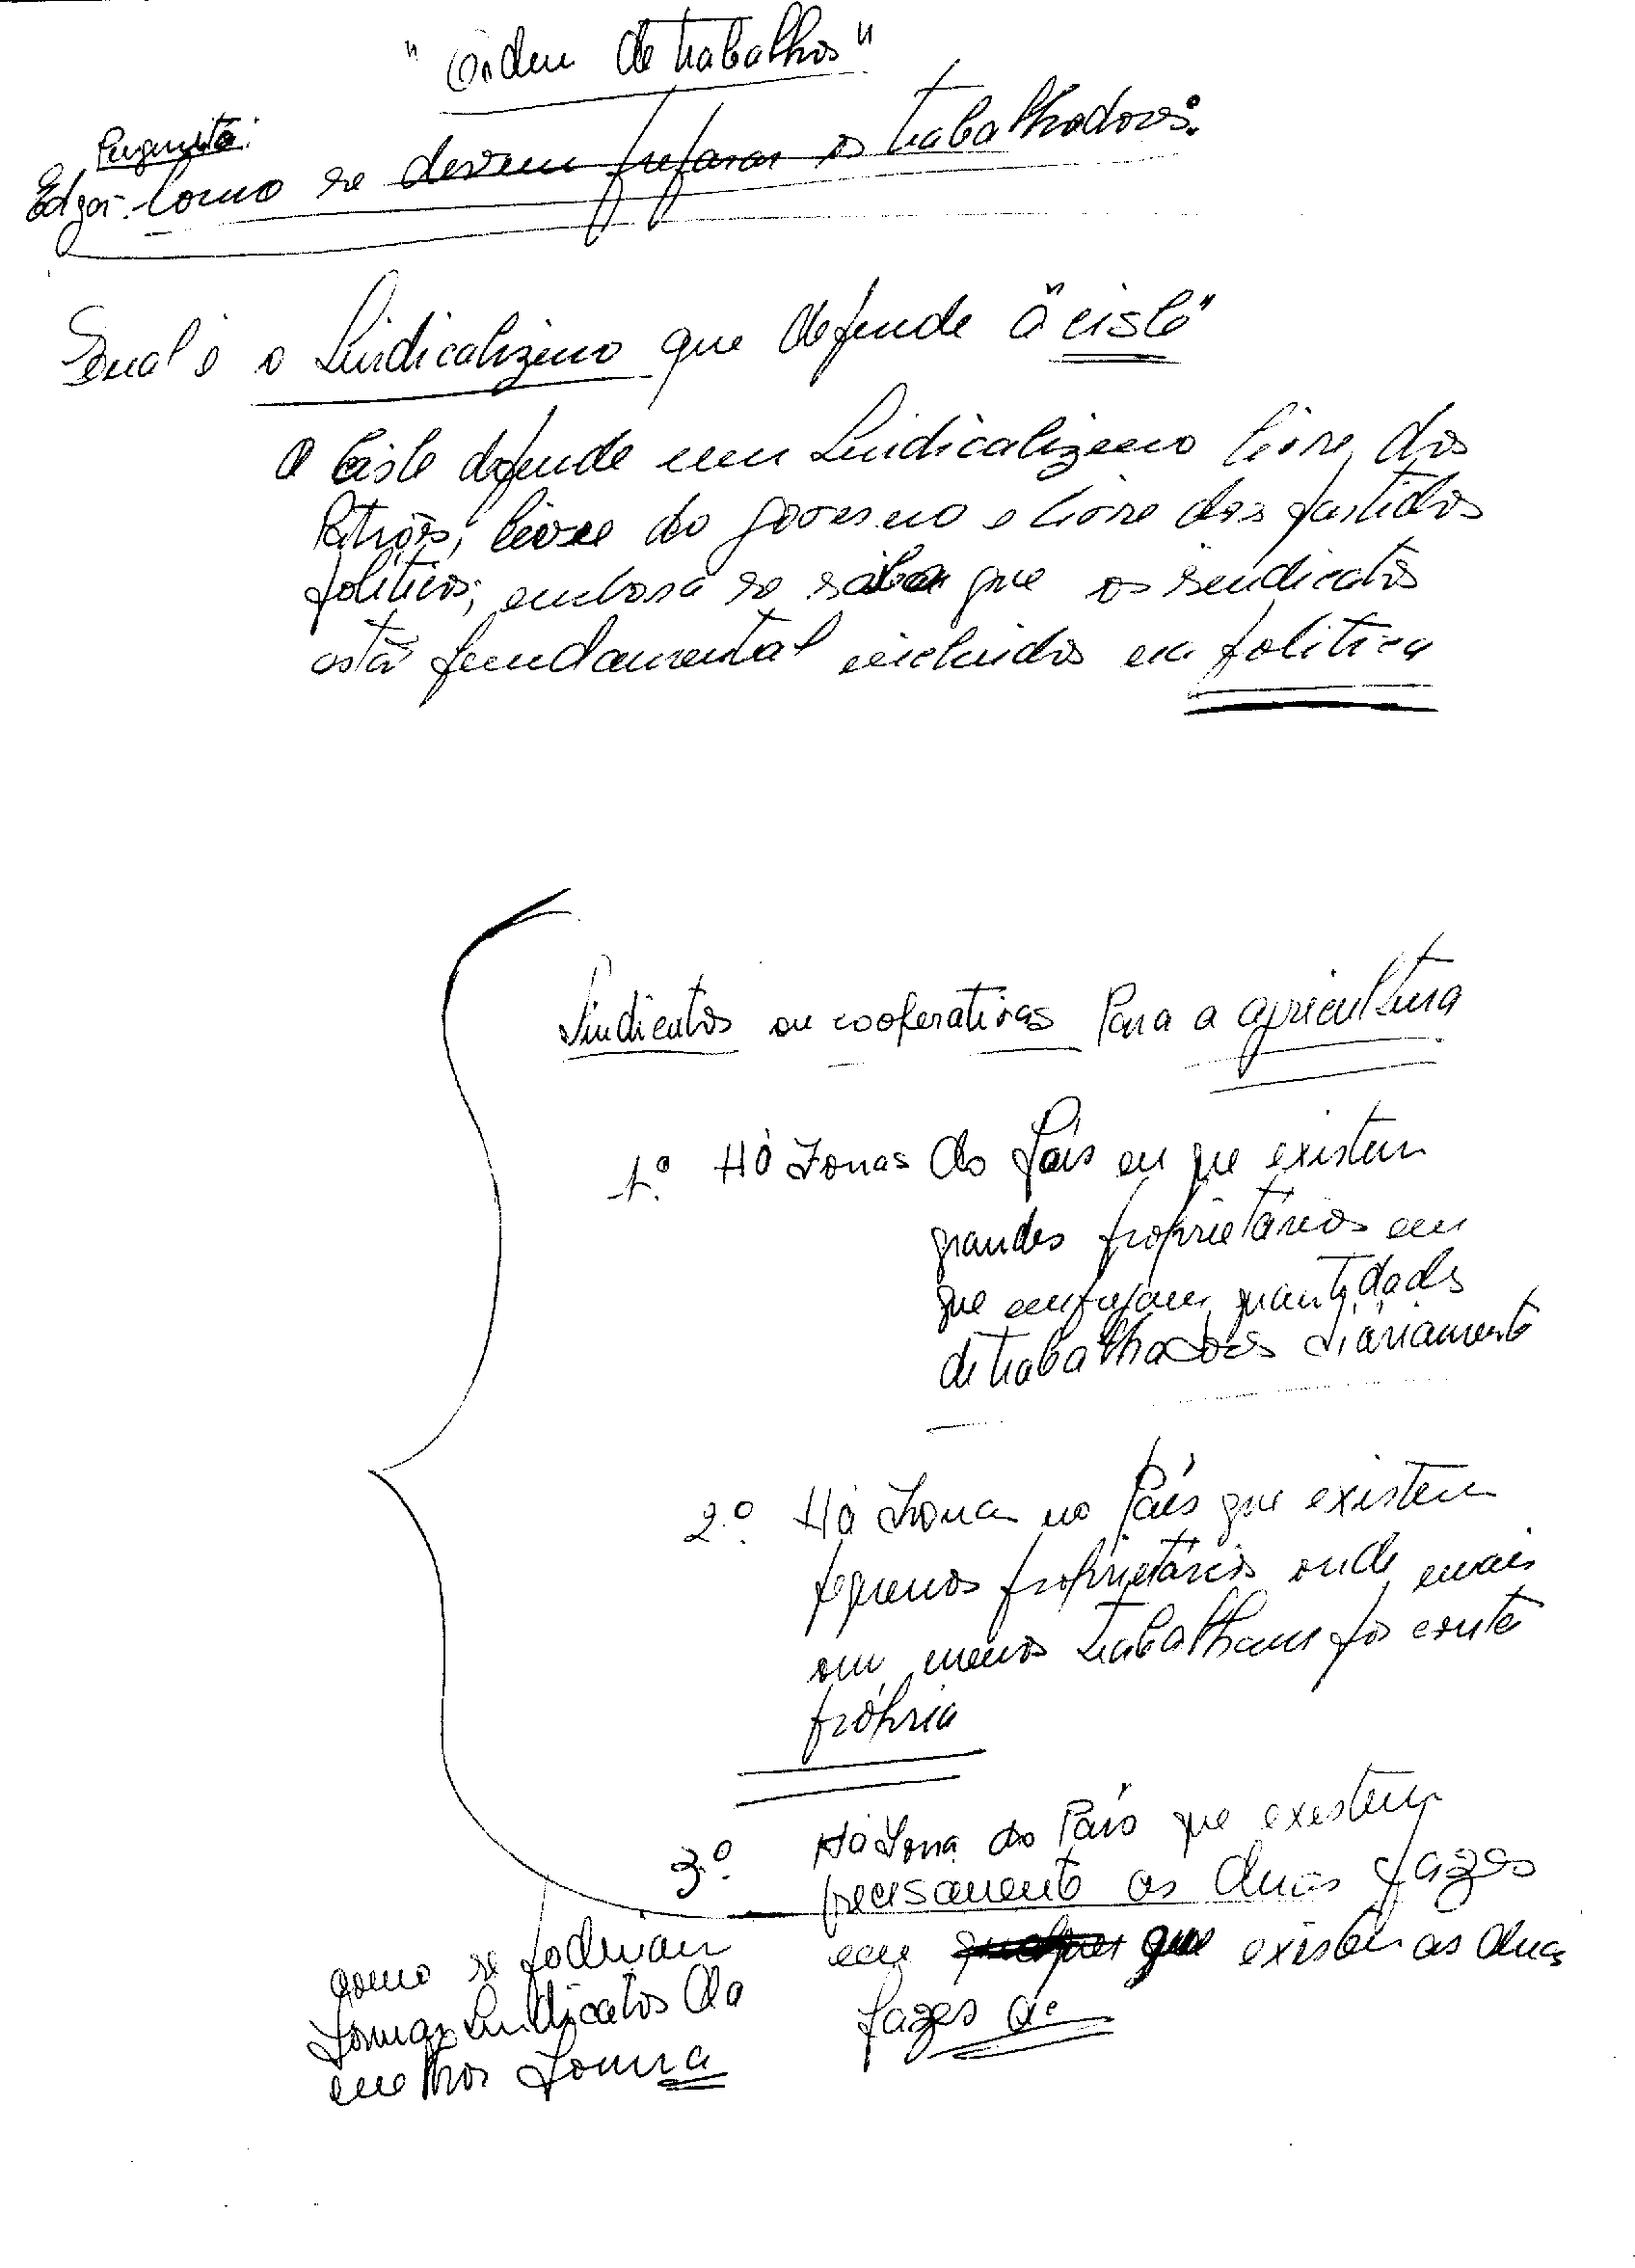 "Ordem de trabalhos"
Pergunta:
Edgar. Como se devem preparar os trabalhadores.
Qual é o Sindicalizmo que defende a "cisle"
A Cisle defende um Sindicalizmo livre dos
Patrões, livre do governo e livre dos partidos
politicos; embora se saiba que os sindicatos
está fundamental incluidos na politica
Sindicatos ou cooperativas Para a agricultura
1.º Há Zonas do País em que existem
grandes proprietários em
que empregam quantidades
de trabalhadores diáriamente
2.º Há Zona no País que existem
pequenos proprietários onde mais
ou menos trabalham por conta
própria
3.º Há Zona do País que existem
precisamente as duas fazes
em que existem as duas
fazes
como se poderiam
formar Sindicatos da
melhor forma